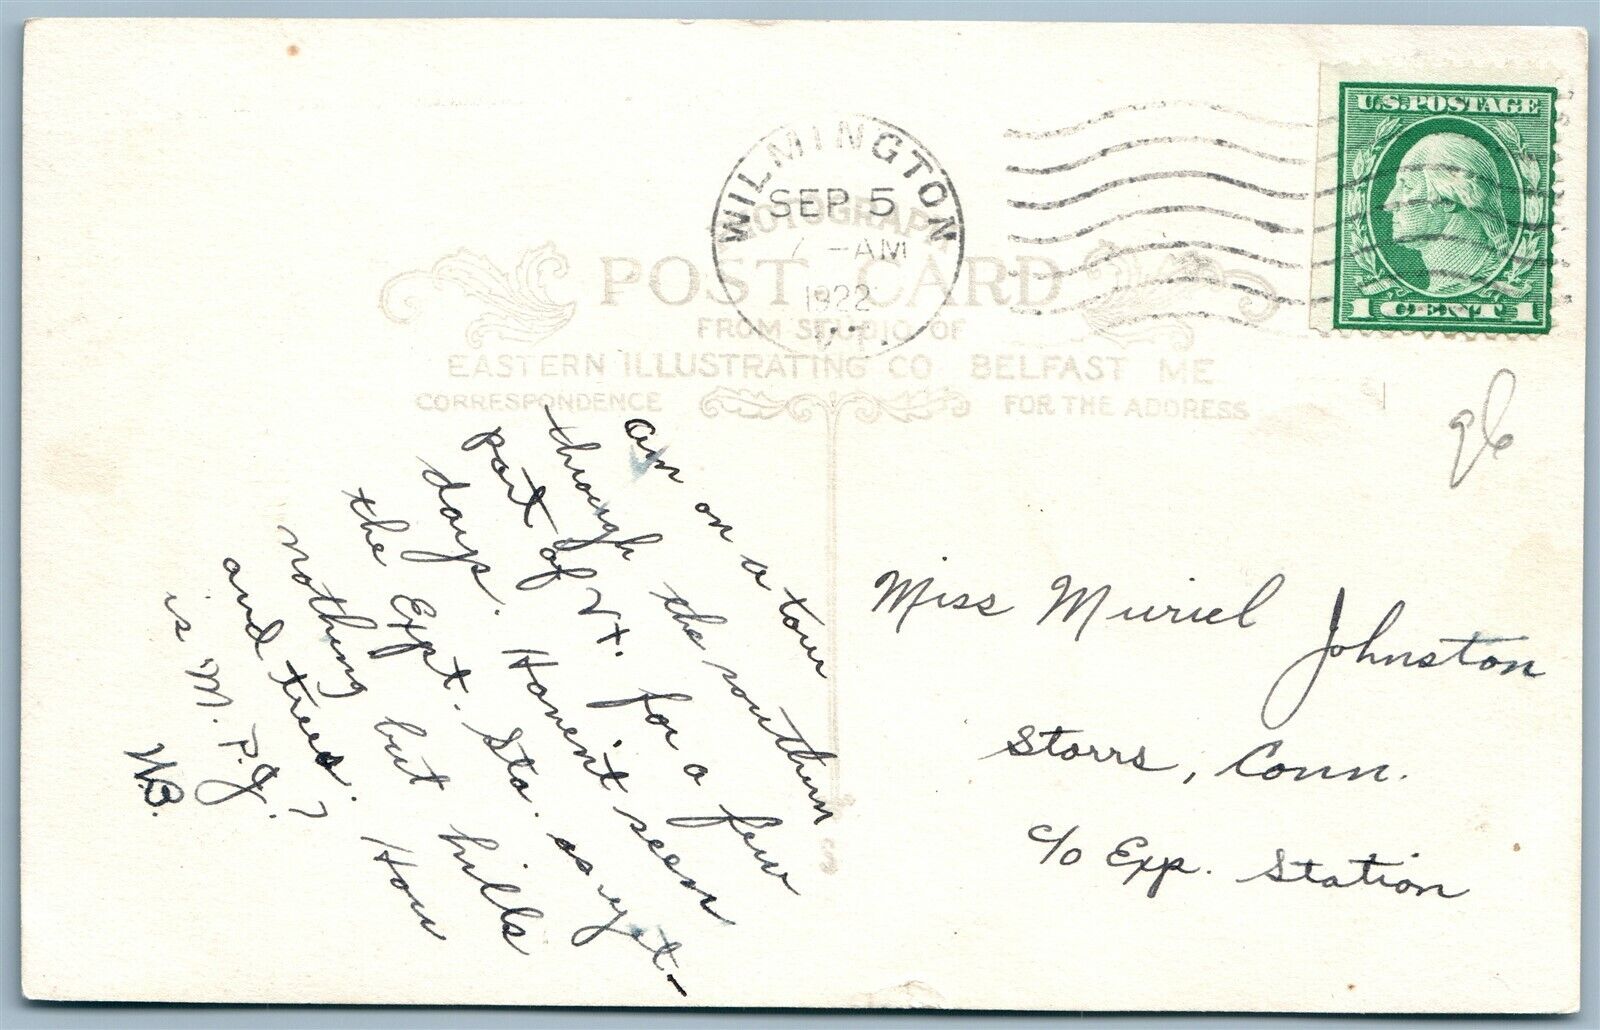 WILMINGTON
SEP 5
7-AM
1922
VT.
U.S. POSTAGE
1 CENT 1
PHOTOGRAPH
POST CARD
FROM STUDIO OF
EASTERN ILLUSTRATING CO BELFAST ME
CORRESPONDENCE
FOR THE ADDRESS
96
am on a tour
through the southern
part of Vt. for a few
days. Haven't seen
the Expt. Sta. as yet -
nothing but hills
and trees. How
is M. P. J. ?
W.B.
Miss Muriel Johnston
Storrs, Conn.
c/o Exp. Station